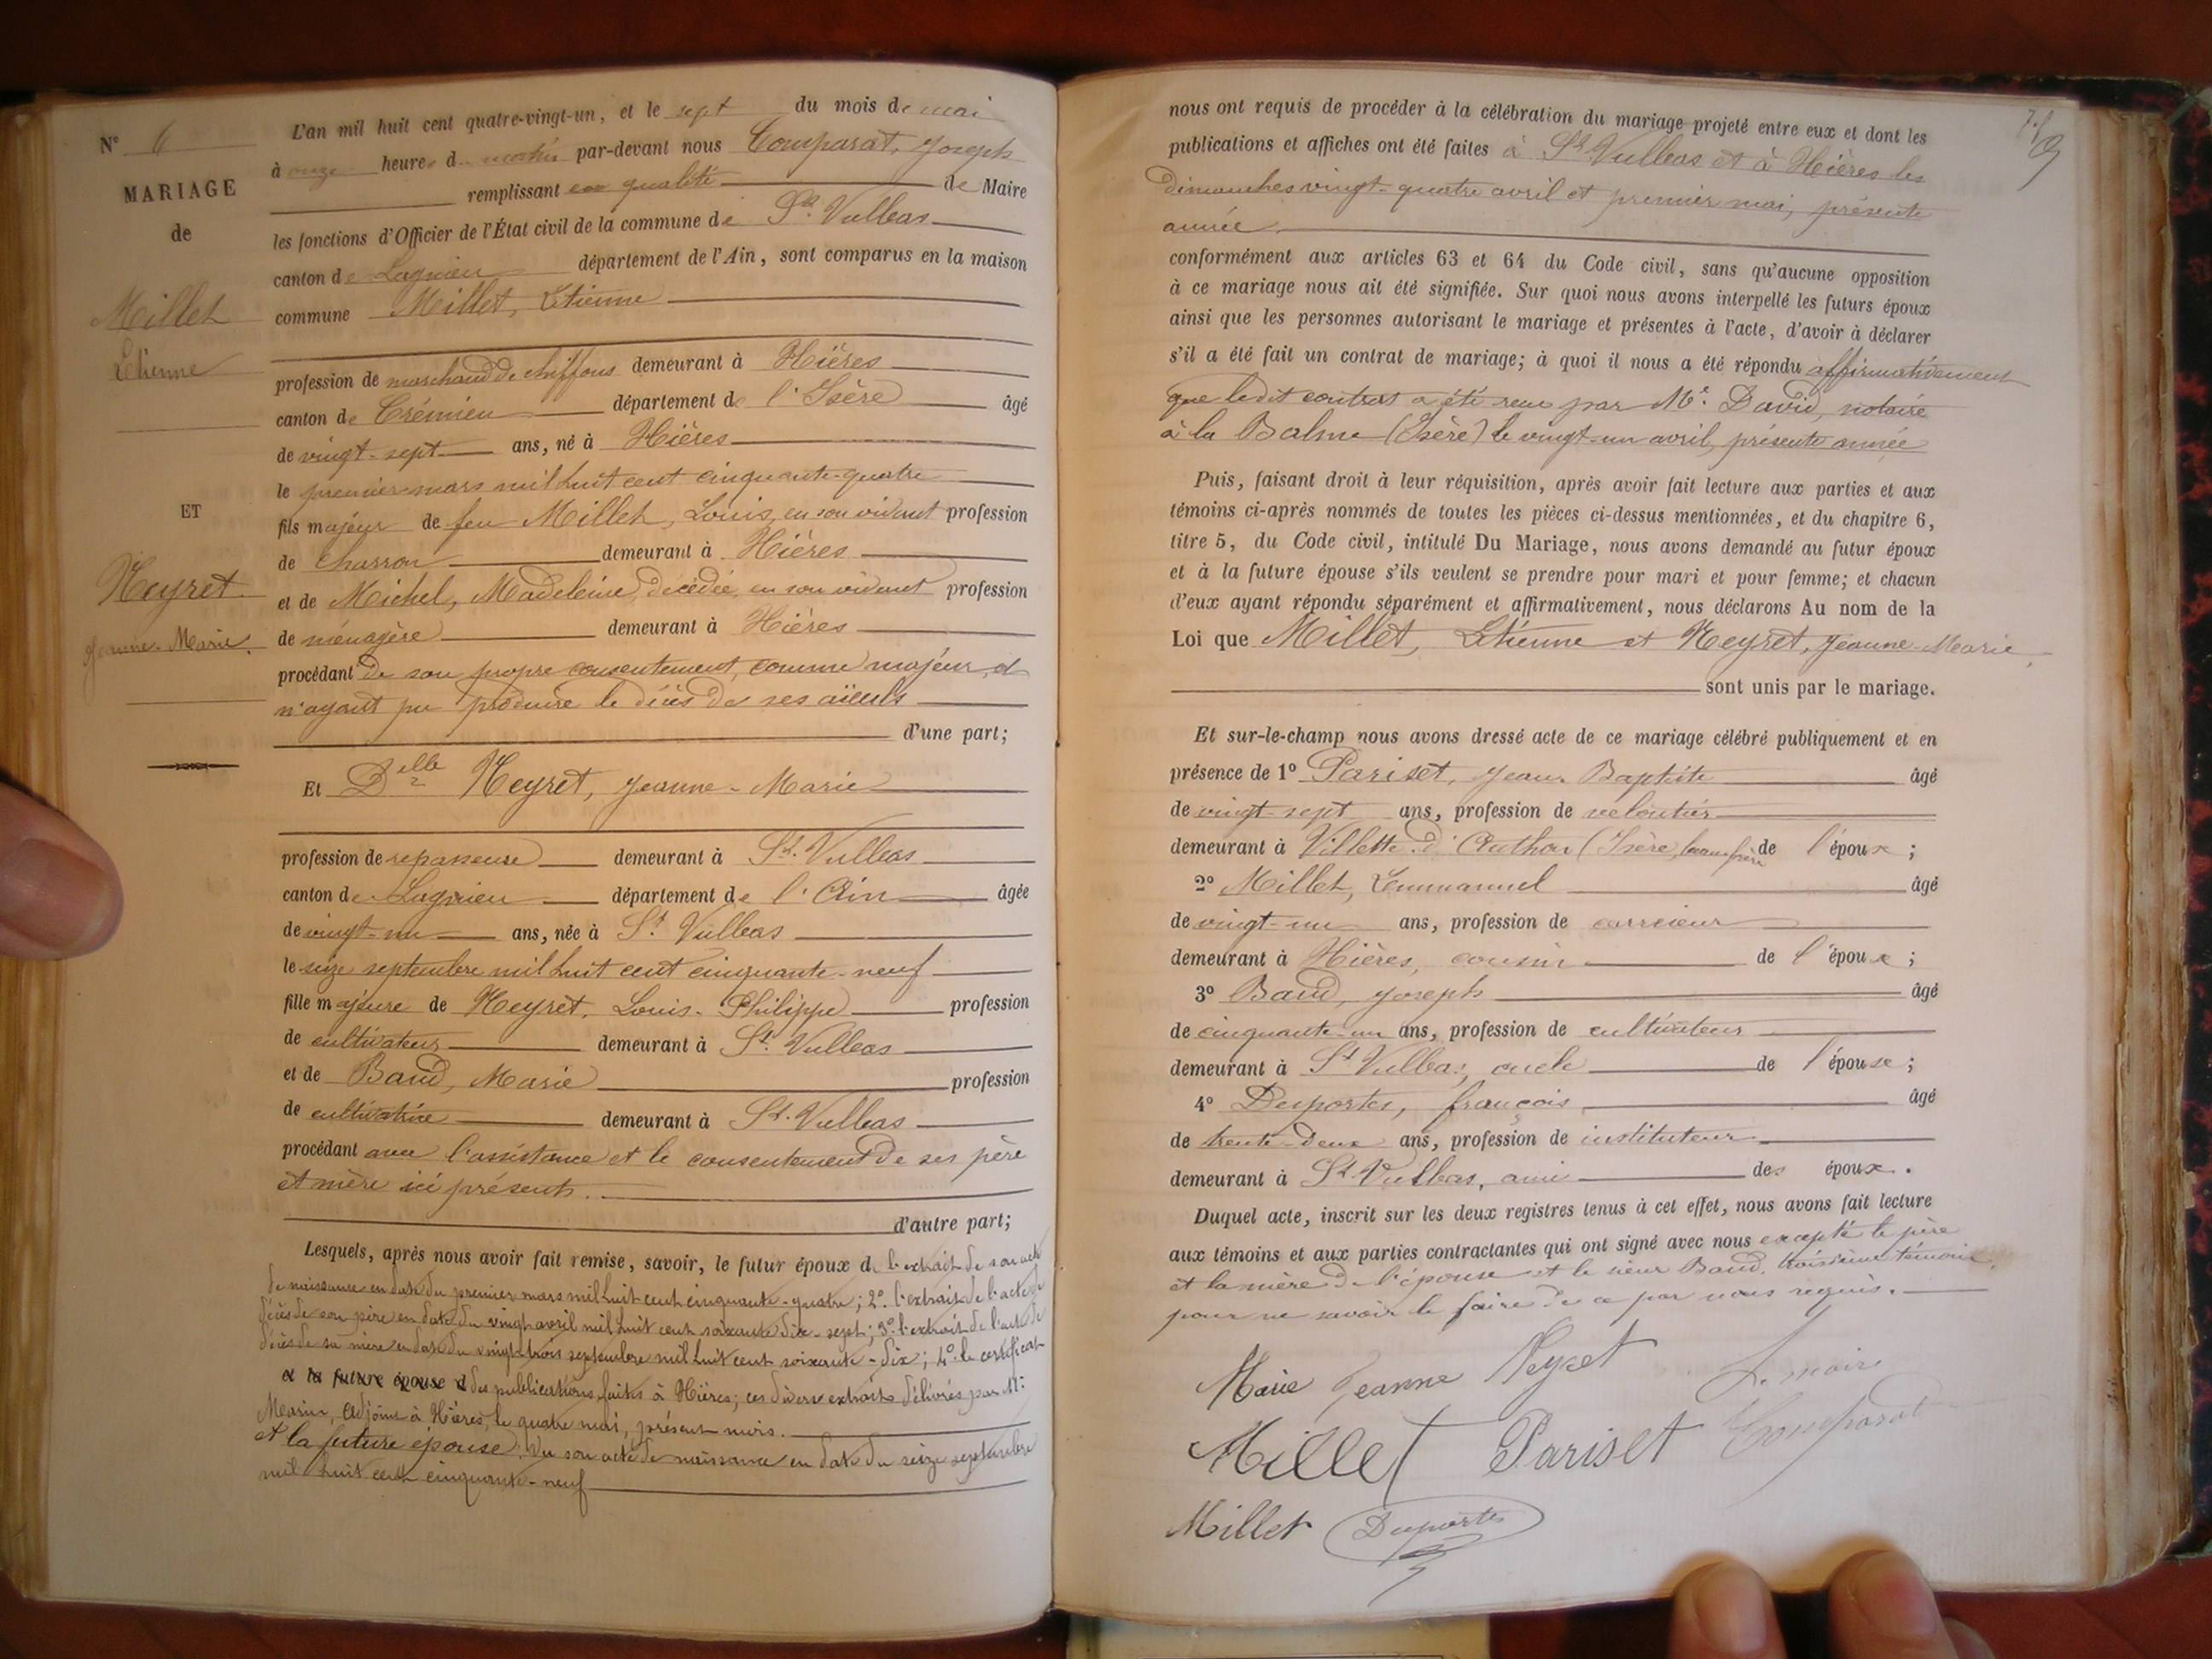 N° 6
MARIAGE
de
Millet
Etienne
ET
Neyret
Jeanne-Marie.
L'an mil huit cent quatre-vingt-un, et le sept du mois de mai
à onze heures du matin par-devant nous Comparat, Joseph
remplissant en qualité de Maire
les fonctions d'Officier de l'État civil de la commune de St. Vulbas
canton de Lagnieu département de l'Ain, sont comparus en la maison
commune Millet, Etienne
profession de marchand de chiffons demeurant à Hières
canton de Crémieu département de l'Isère âgé
de vingt-sept ans, né à Hières
le premier mars mil huit cent cinquante-quatre
fils majeur de feu Millet, Louis, en son vivant profession
de charron demeurant à Hières
et de Michel, Madeleine, décédée, en son vivant profession
de ménagère demeurant à Hières
procédant de son propre consentement, comme majeur, et
n'ayant pu produire le décès de ses aïeuls
d'une part;
Et Delle Neyret, Jeanne-Marie
profession de repasseuse demeurant à St. Vulbas
canton de Lagnieu département de l'Ain âgée
de vingt-un ans, née à St. Vulbas
le seize septembre mil huit cent cinquante-neuf
fille majeure de Neyret, Louis-Philippe profession
de cultivateur demeurant à St. Vulbas
et de Baud, Marie profession
de cultivatrice demeurant à St. Vulbas
procédant avec l'assistance et le consentement de ses père
et mère ici présents.
d'autre part;
Lesquels, après nous avoir fait remise, savoir, le futur époux de l'extrait de son acte
de naissance en date du premier mars mil huit cent cinquante-quatre; 2° l'extrait de l'acte de
décès de son père en date du vingt avril mil huit cent soixante dix-sept; 3° l'extrait de l'acte de
décès de sa mère en date du vingt-trois septembre mil huit cent soixante-dix; 4° le certificat
et la future épouse d des publications faites à Hières; ces divers extraits délivrés par Mr.
Marin, Adjoint à Hières, le quatre mai, présent mois.
et la future épouse, Vu son acte de naissance en date du seize septembre
mil huit cent cinquante-neuf
nous ont requis de procéder à la célébration du mariage projeté entre eux et dont les
publications et affiches ont été faites à St. Vulbas et à Hières les
dimanches vingt-quatre avril et premier mai, présente
année.
conformément aux articles 63 et 64 du Code civil, sans qu'aucune opposition
à ce mariage nous ait été signifiée. Sur quoi nous avons interpellé les futurs époux
ainsi que les personnes autorisant le mariage et présentes à l'acte, d'avoir à déclarer
s'il a été fait un contrat de mariage; à quoi il nous a été répondu affirmativement
que ledit contrat a été reçu par Me. David, notaire
à la Balme (Isère) le vingt-un avril, présente année
Puis, faisant droit à leur réquisition, après avoir fait lecture aux parties et aux
témoins ci-après nommés de toutes les pièces ci-dessus mentionnées, et du chapitre 6,
titre 5, du Code civil, intitulé Du Mariage, nous avons demandé au futur époux
et à la future épouse s'ils veulent se prendre pour mari et pour femme; et chacun
d'eux ayant répondu séparément et affirmativement, nous déclarons Au nom de la
Loi que Millet, Etienne et Neyret, Jeanne-Marie,
sont unis par le mariage.
Et sur-le-champ nous avons dressé acte de ce mariage célébré publiquement et en
présence de 1° Pariset, Jean Baptiste âgé
de vingt-sept ans, profession de veloutier
demeurant à Villette d'Anthon (Isère, beau frère de l'époux;
2° Millet, Emmanuel âgé
de vingt-un ans, profession de carrieur
demeurant à Hières, cousin de l'époux;
3° Baud, Joseph âgé
de cinquante-un ans, profession de cultivateur
demeurant à St Vulbas, oncle de l'épouse;
4° Desportes, françois âgé
de trente-deux ans, profession de instituteur
demeurant à St Vulbas, ami des époux.
Duquel acte, inscrit sur les deux registres tenus à cet effet, nous avons fait lecture
aux témoins et aux parties contractantes qui ont signé avec nous excepté le père
et la mère de l'épouse et le sieur Baud, troisième témoin,
pour ne savoir le faire de ce par nous requis.
Marie Jeanne Neyret
Le maire
Millet Pariset Comparat
Millet Desportes